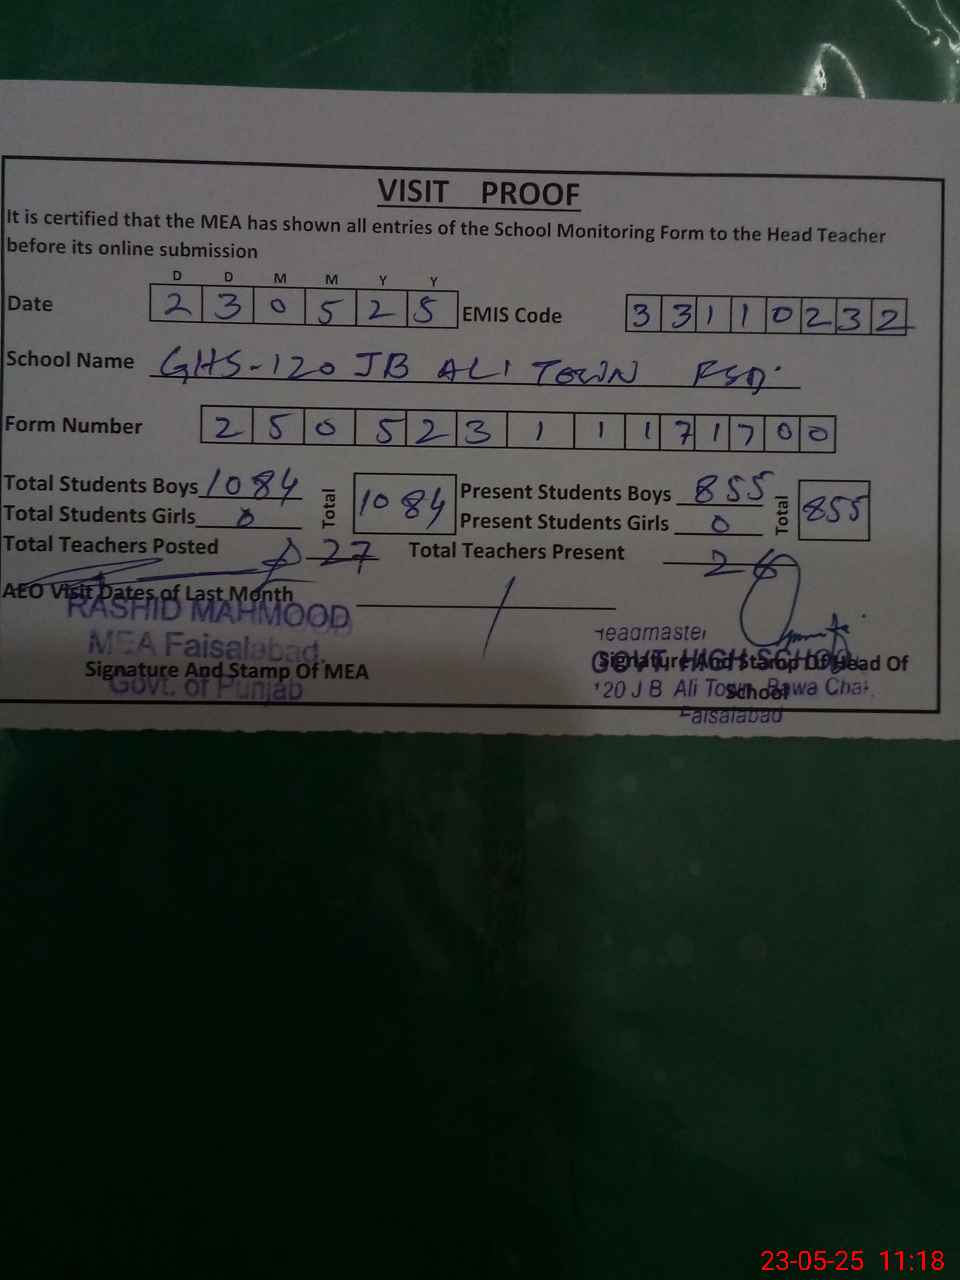 VISIT PROOF
It is certified that the MEA has shown all entries of the School Monitoring Form to the Head Teacher
before its online submission
D D M M Y Y
Date 2 3 0 5 2 5 EMIS Code 3 3 1 1 0 2 3 2
School Name GHS-120 JB ALI TOWN FSD.
Form Number 2 5 0 5 2 3 1 1 1 7 1 7 0 0
Total Students Boys 1084 Total 1084 Present Students Boys 855 Total 855
Total Students Girls 0 Present Students Girls 0
Total Teachers Posted 27 Total Teachers Present 26
AEO Visit Dates of Last Month /
RASHID MAHMOOD
MEA Faisalabad.
Signature And Stamp Of MEA
Govt. of Punjab
Headmaster
GOVT. HIGH SCHOOL
Signature And Stamp Of Head Of
School
120 J B Ali Town, Bawa Chak,
Faisalabad
23-05-25 11:18